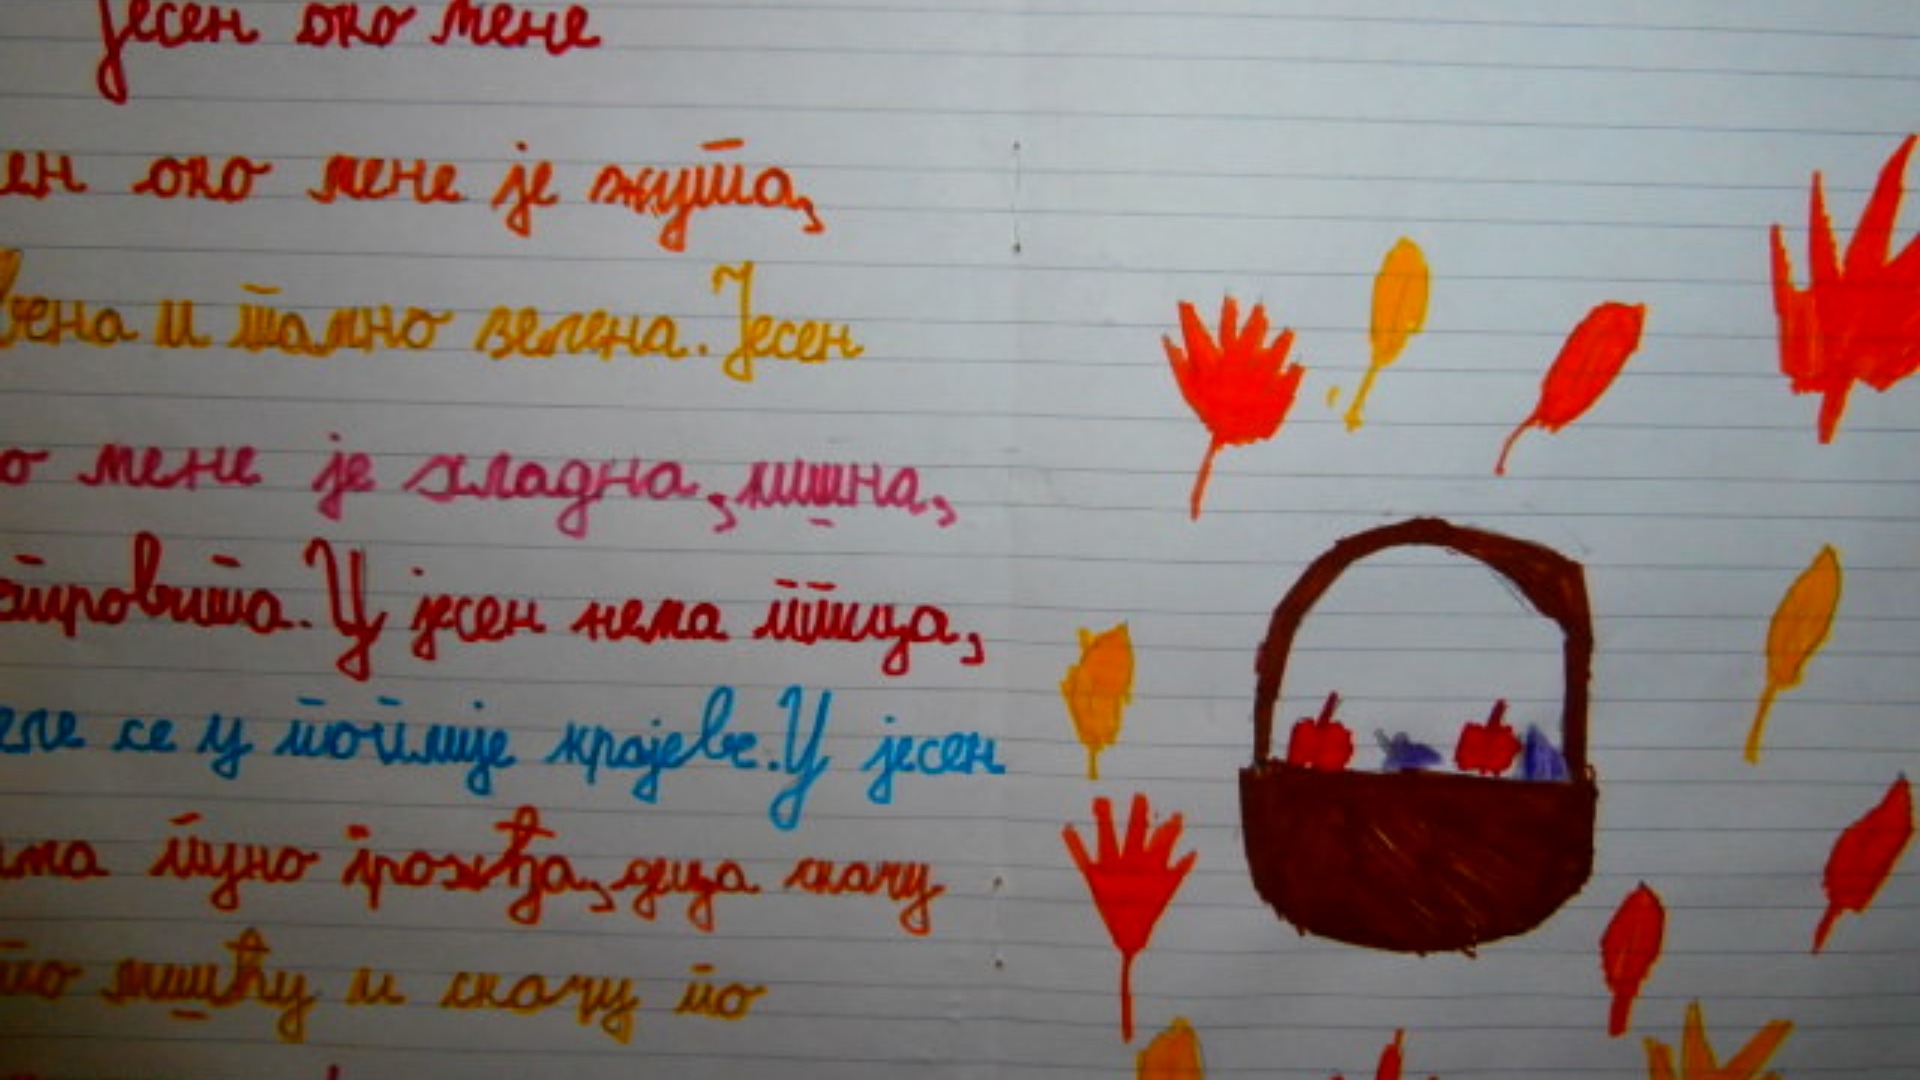 Јесен око мене
ен око мене је жута,
вена и тамно зелена. Јесен
о мене је хладна, кишна,
етровита. У јесен нема птица,
еле се у топлије крајеве. У јесен
има пуно грожђа, деца скачу
по лишћу и скачу по